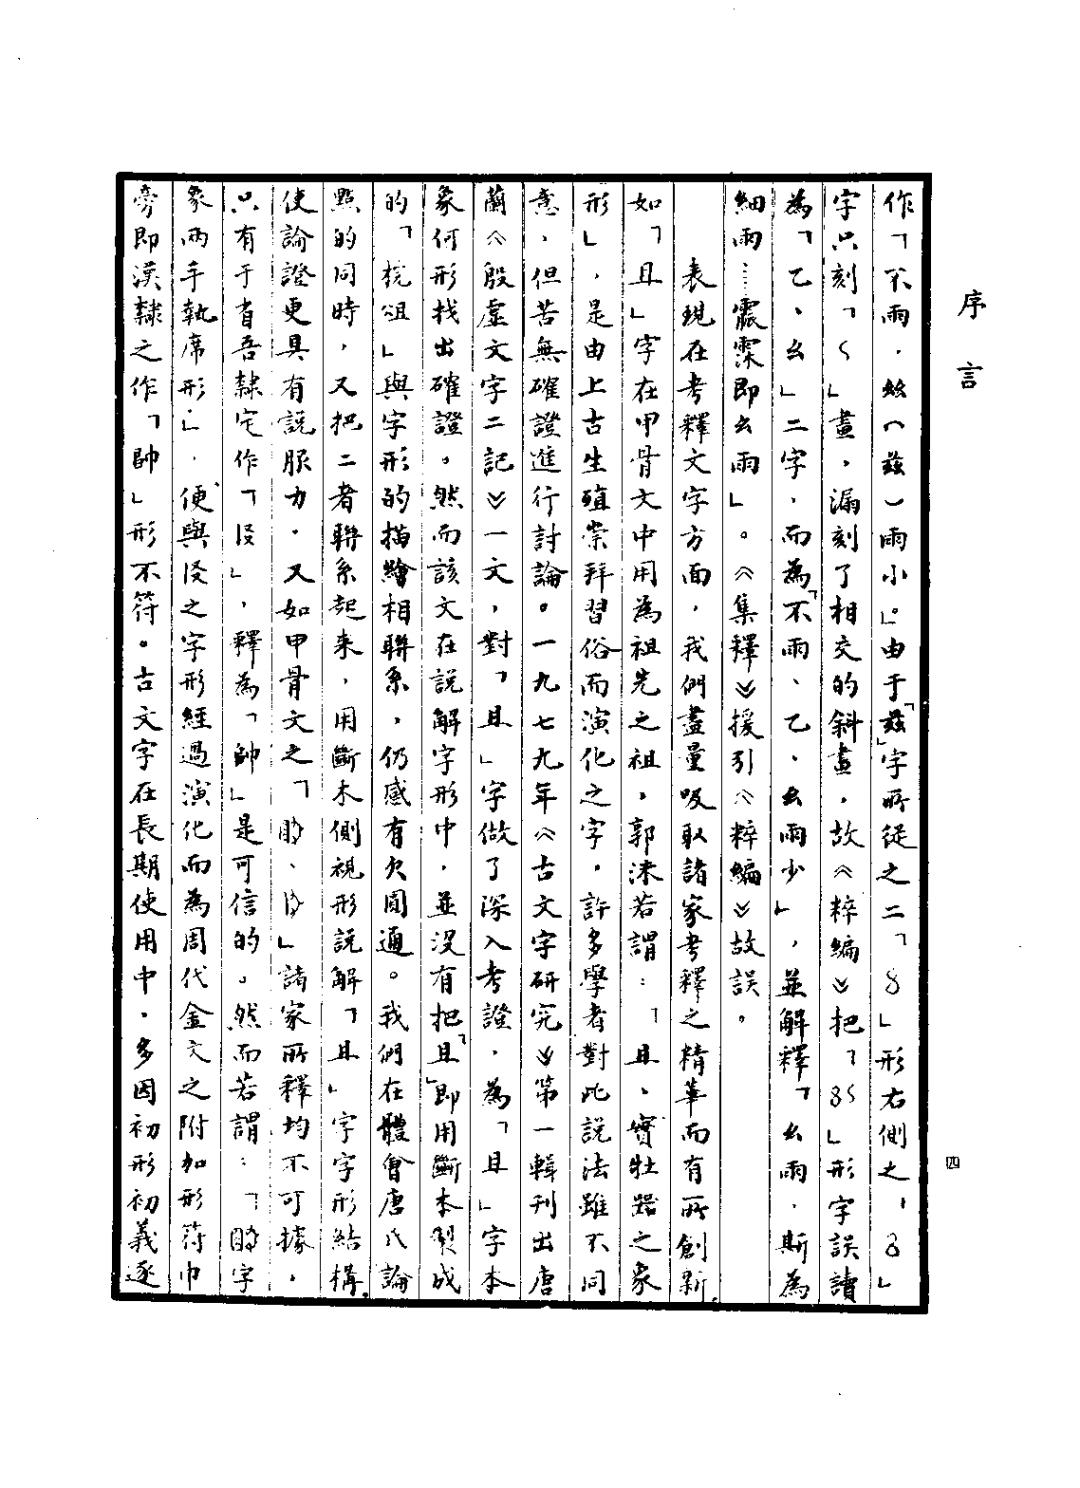 序言
四
作「不雨，𢆶（兹）雨小。」由于「兹」字所從之二「8」形右側之，「8」
字只刻「㇛」畫，漏刻了相交的斜畫，故《粹編》把「8㇛」形字誤讀
為「乙、幺」二字，而為「不雨、乙、幺雨少」，並解釋「幺雨，斯為
細雨⋯震霂即幺雨」。《集釋》援引《粹編》故誤。
表現在考釋文字方面，我們盡量吸取諸家考釋之精華而有所創新，
如「且」字在甲骨文中用為祖先之祖，郭沫若謂：「且、實牡器之象
形」，是由上古生殖崇拜習俗而演化之字，許多學者對此說法雖不同
意，但苦無確證進行討論。一九七九年《古文字研究》第一輯刊出唐
蘭《殷虛文字二記》一文，對「且」字做了深入考證，為「且」字本
象何形找出確證。然而該文在說解字形中，並沒有把「且」即用斷木製成
的「梡俎」與字形的描繪相聯系，仍感有欠圓通。我們在體會唐氏論
點的同時，又把二者聯系起來，用斷木側視形說解「且」字字形結構，
使論證更具有說服力。又如甲骨文之「、」諸家所釋均不可據，
只有于省吾隸定作「」，釋為「帥」是可信的。然而若謂：「字
象兩手執席形」，便與之字形經過演化而為周代金文之附加形符巾
旁即漢隸之作「帥」形不符。古文字在長期使用中，多因初形初義逐